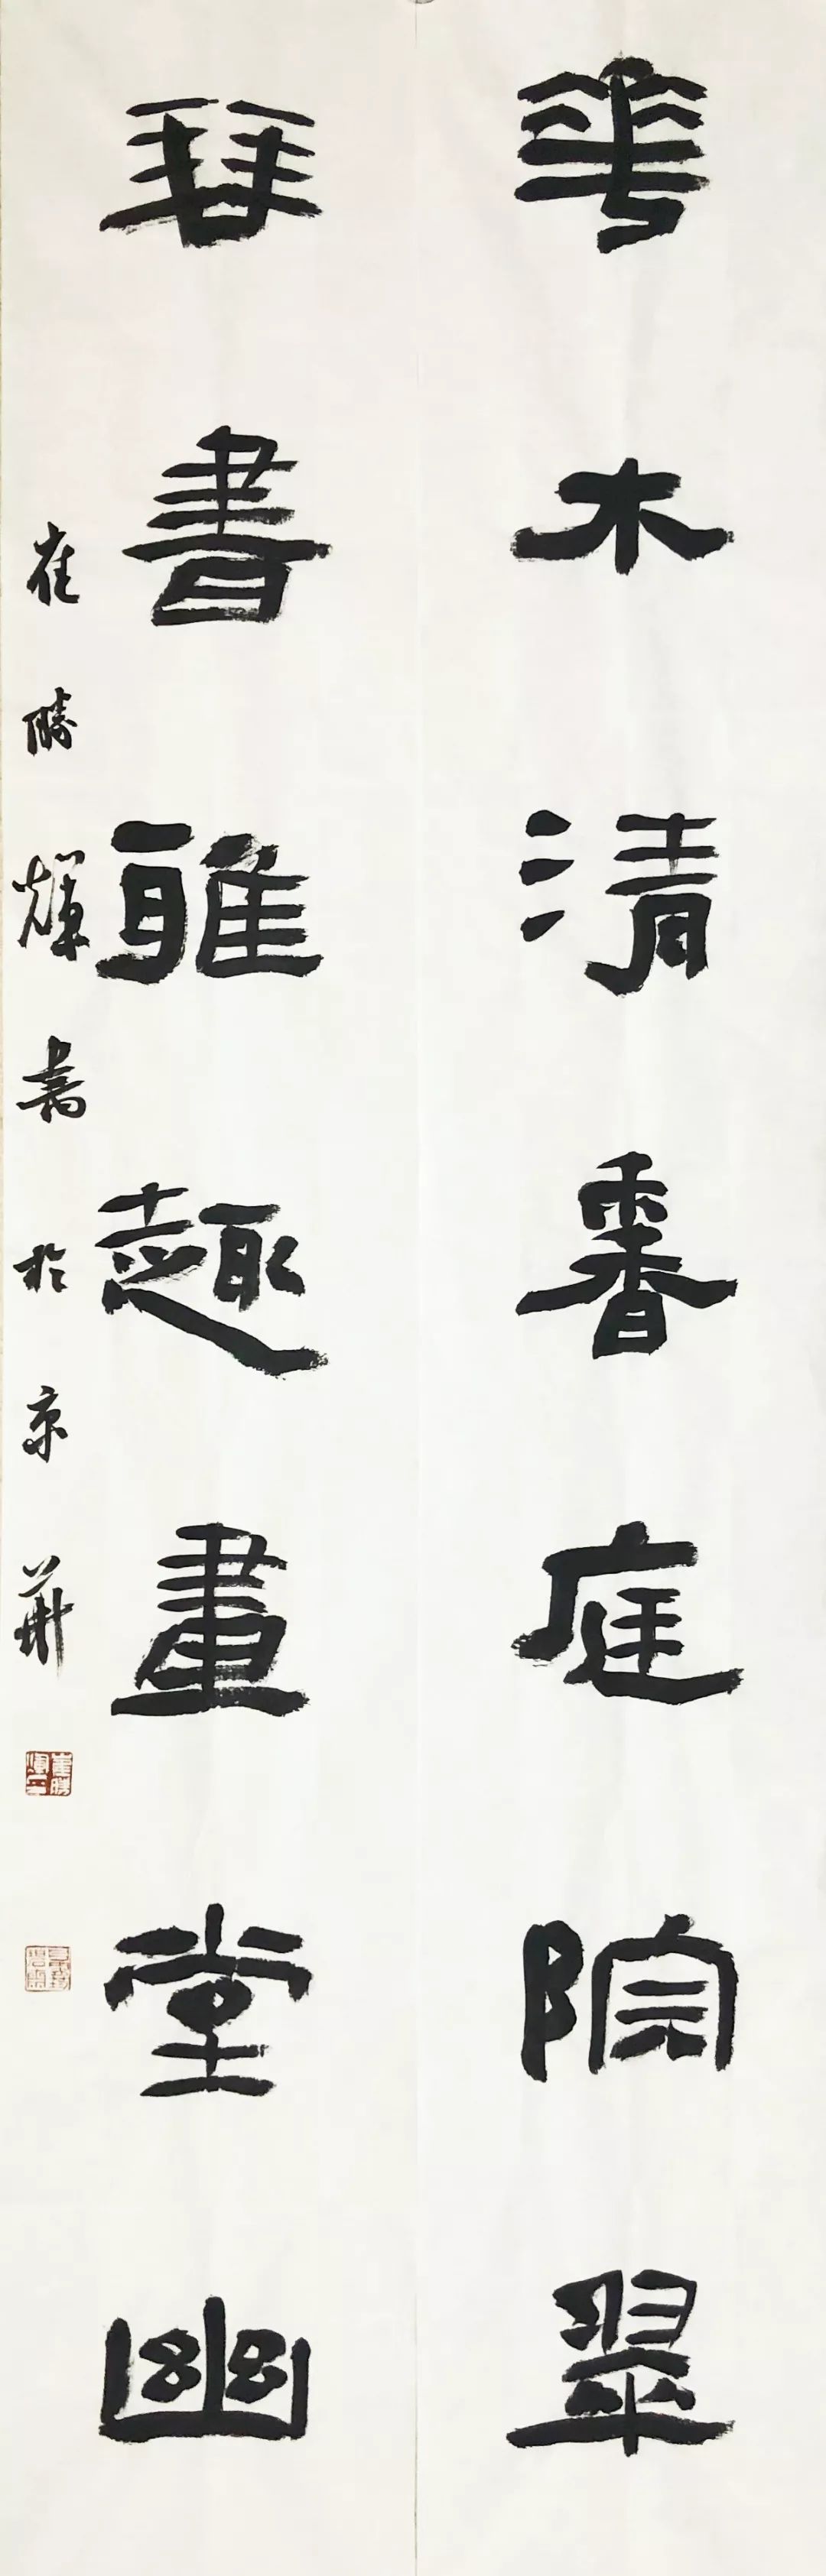 華木清香庭院翠
琴書雅趣畫堂幽
崔勝輝書於京華